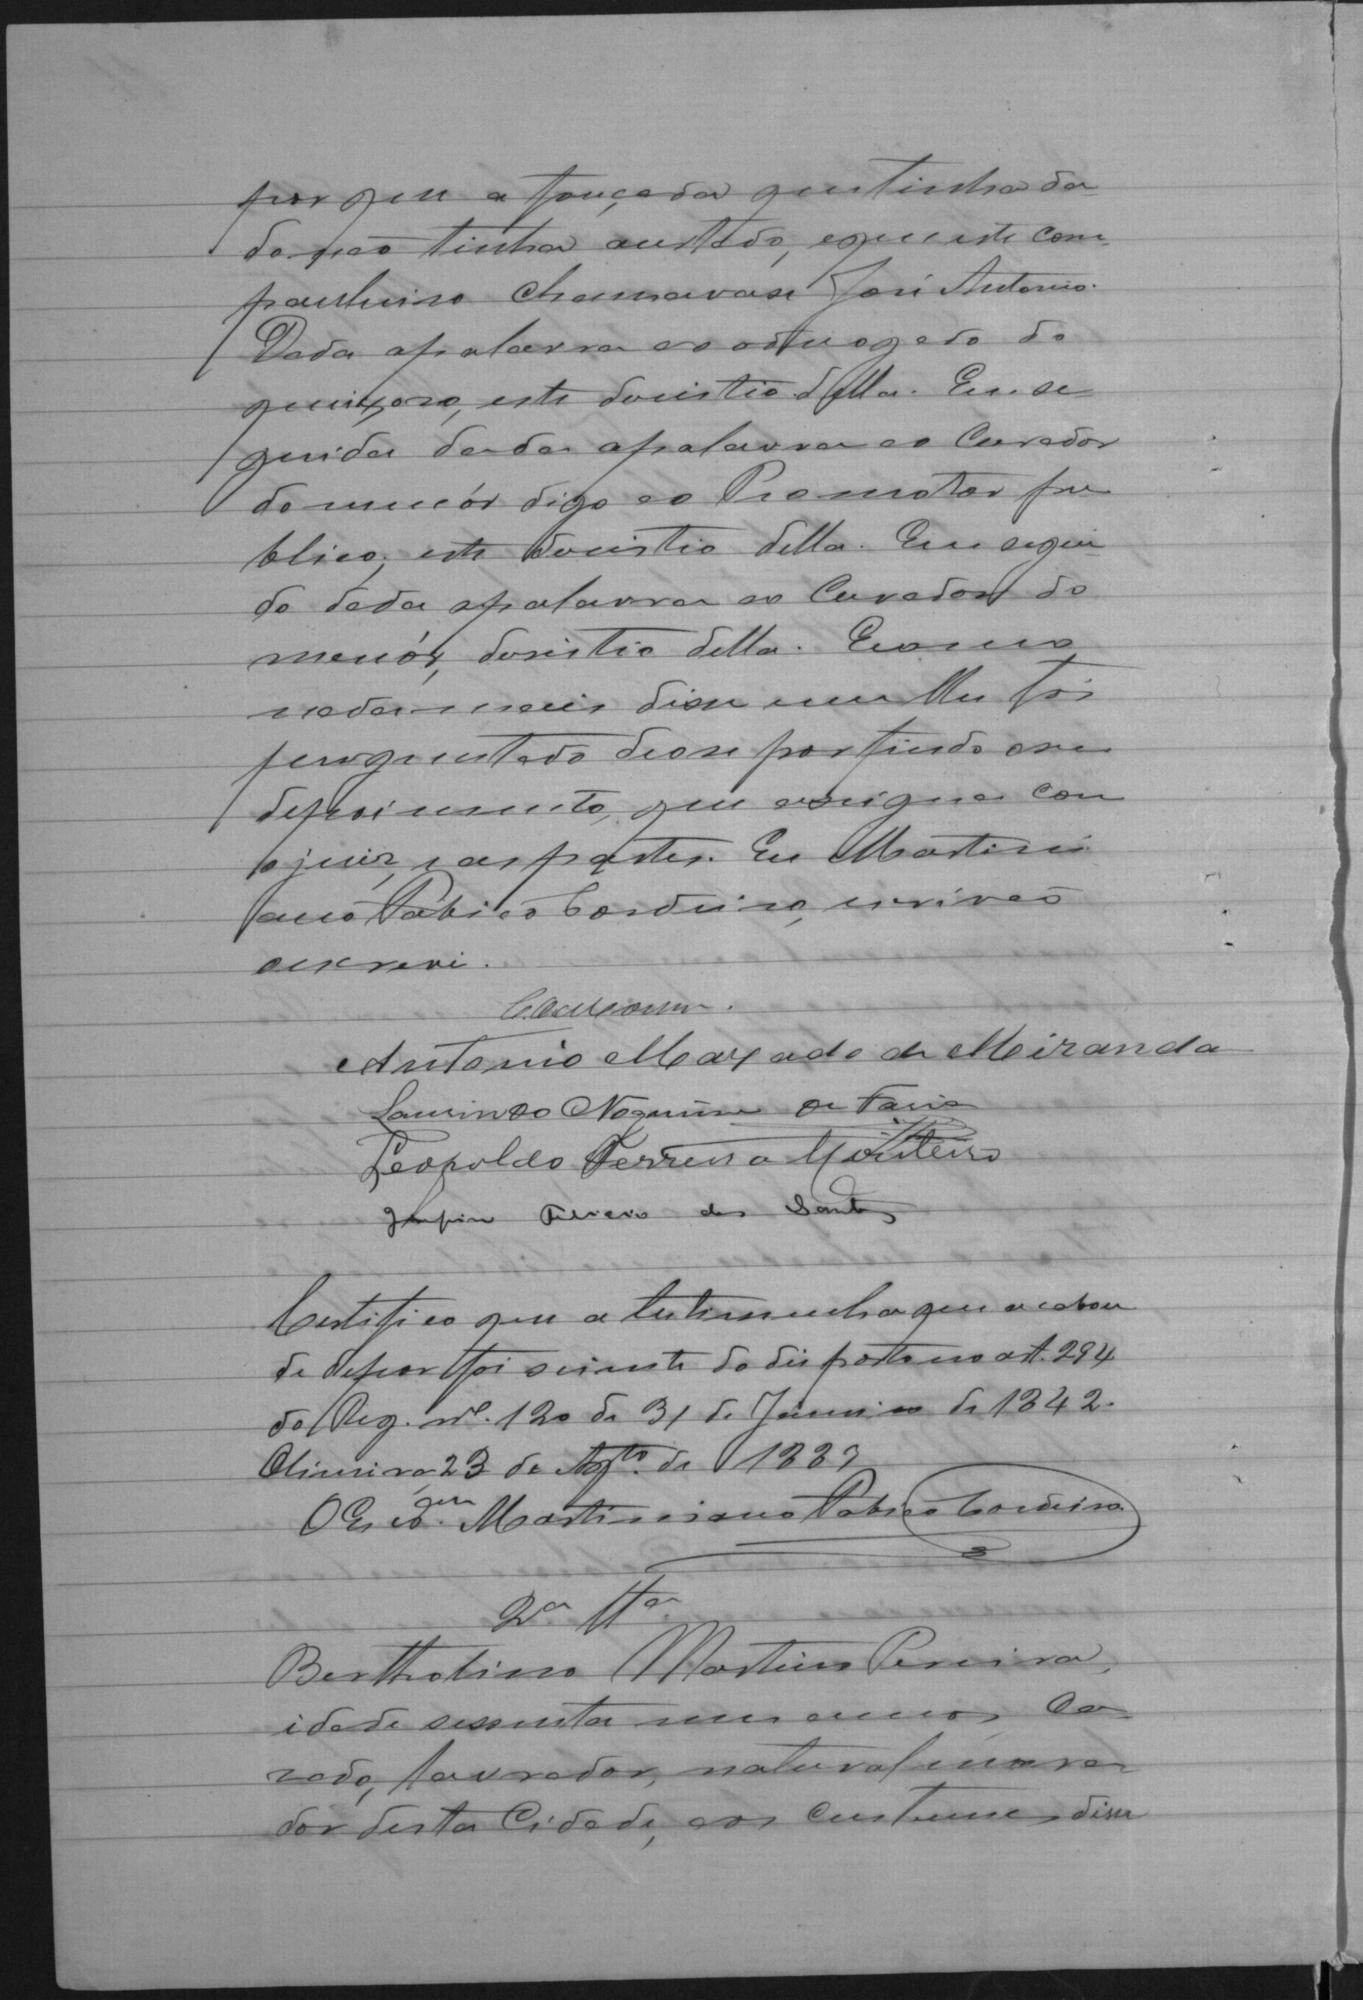 por que a fouçada que tinha da
do não tinha custado, e que este com
panheiro chamava se José Antonio.
Dada a palavra ao advogado do
queixoso, este desistio della. Em se
guida dada a palavra ao Curador
do menór digo ao Promotor pu
blico, este desistio della. Em segui
do dada a palavra ao Curador do
menór, desistio della. E como
nada mais disse nem lhe foi
perguntado deo se por findo esse
depoimento, que assigna com
o juiz, e as partes. Eu Martini
ano Pabico Cordeiro, escrivão
escrevi.
Antonio Maxado de Miranda
Laurindo Nogueira de Faria
Leopoldo Ferreira Monteiro
Felicio dos Santos
Certifico que a testemunha que acabou
de depor foi sciente do disposto no art. 294
do Reg. nº. 120 de 31 de Janeiro de 1842.
Oliveira 23 de Agto. de 1889
O Escram. Martiniano Pabico Cordeiro
2ª Tta.
Bertholino Martins Pereira,
idade sessenta um annos, Ca
zado, lavrador, natural e mora
dor desta Cidade, aos custumes disse